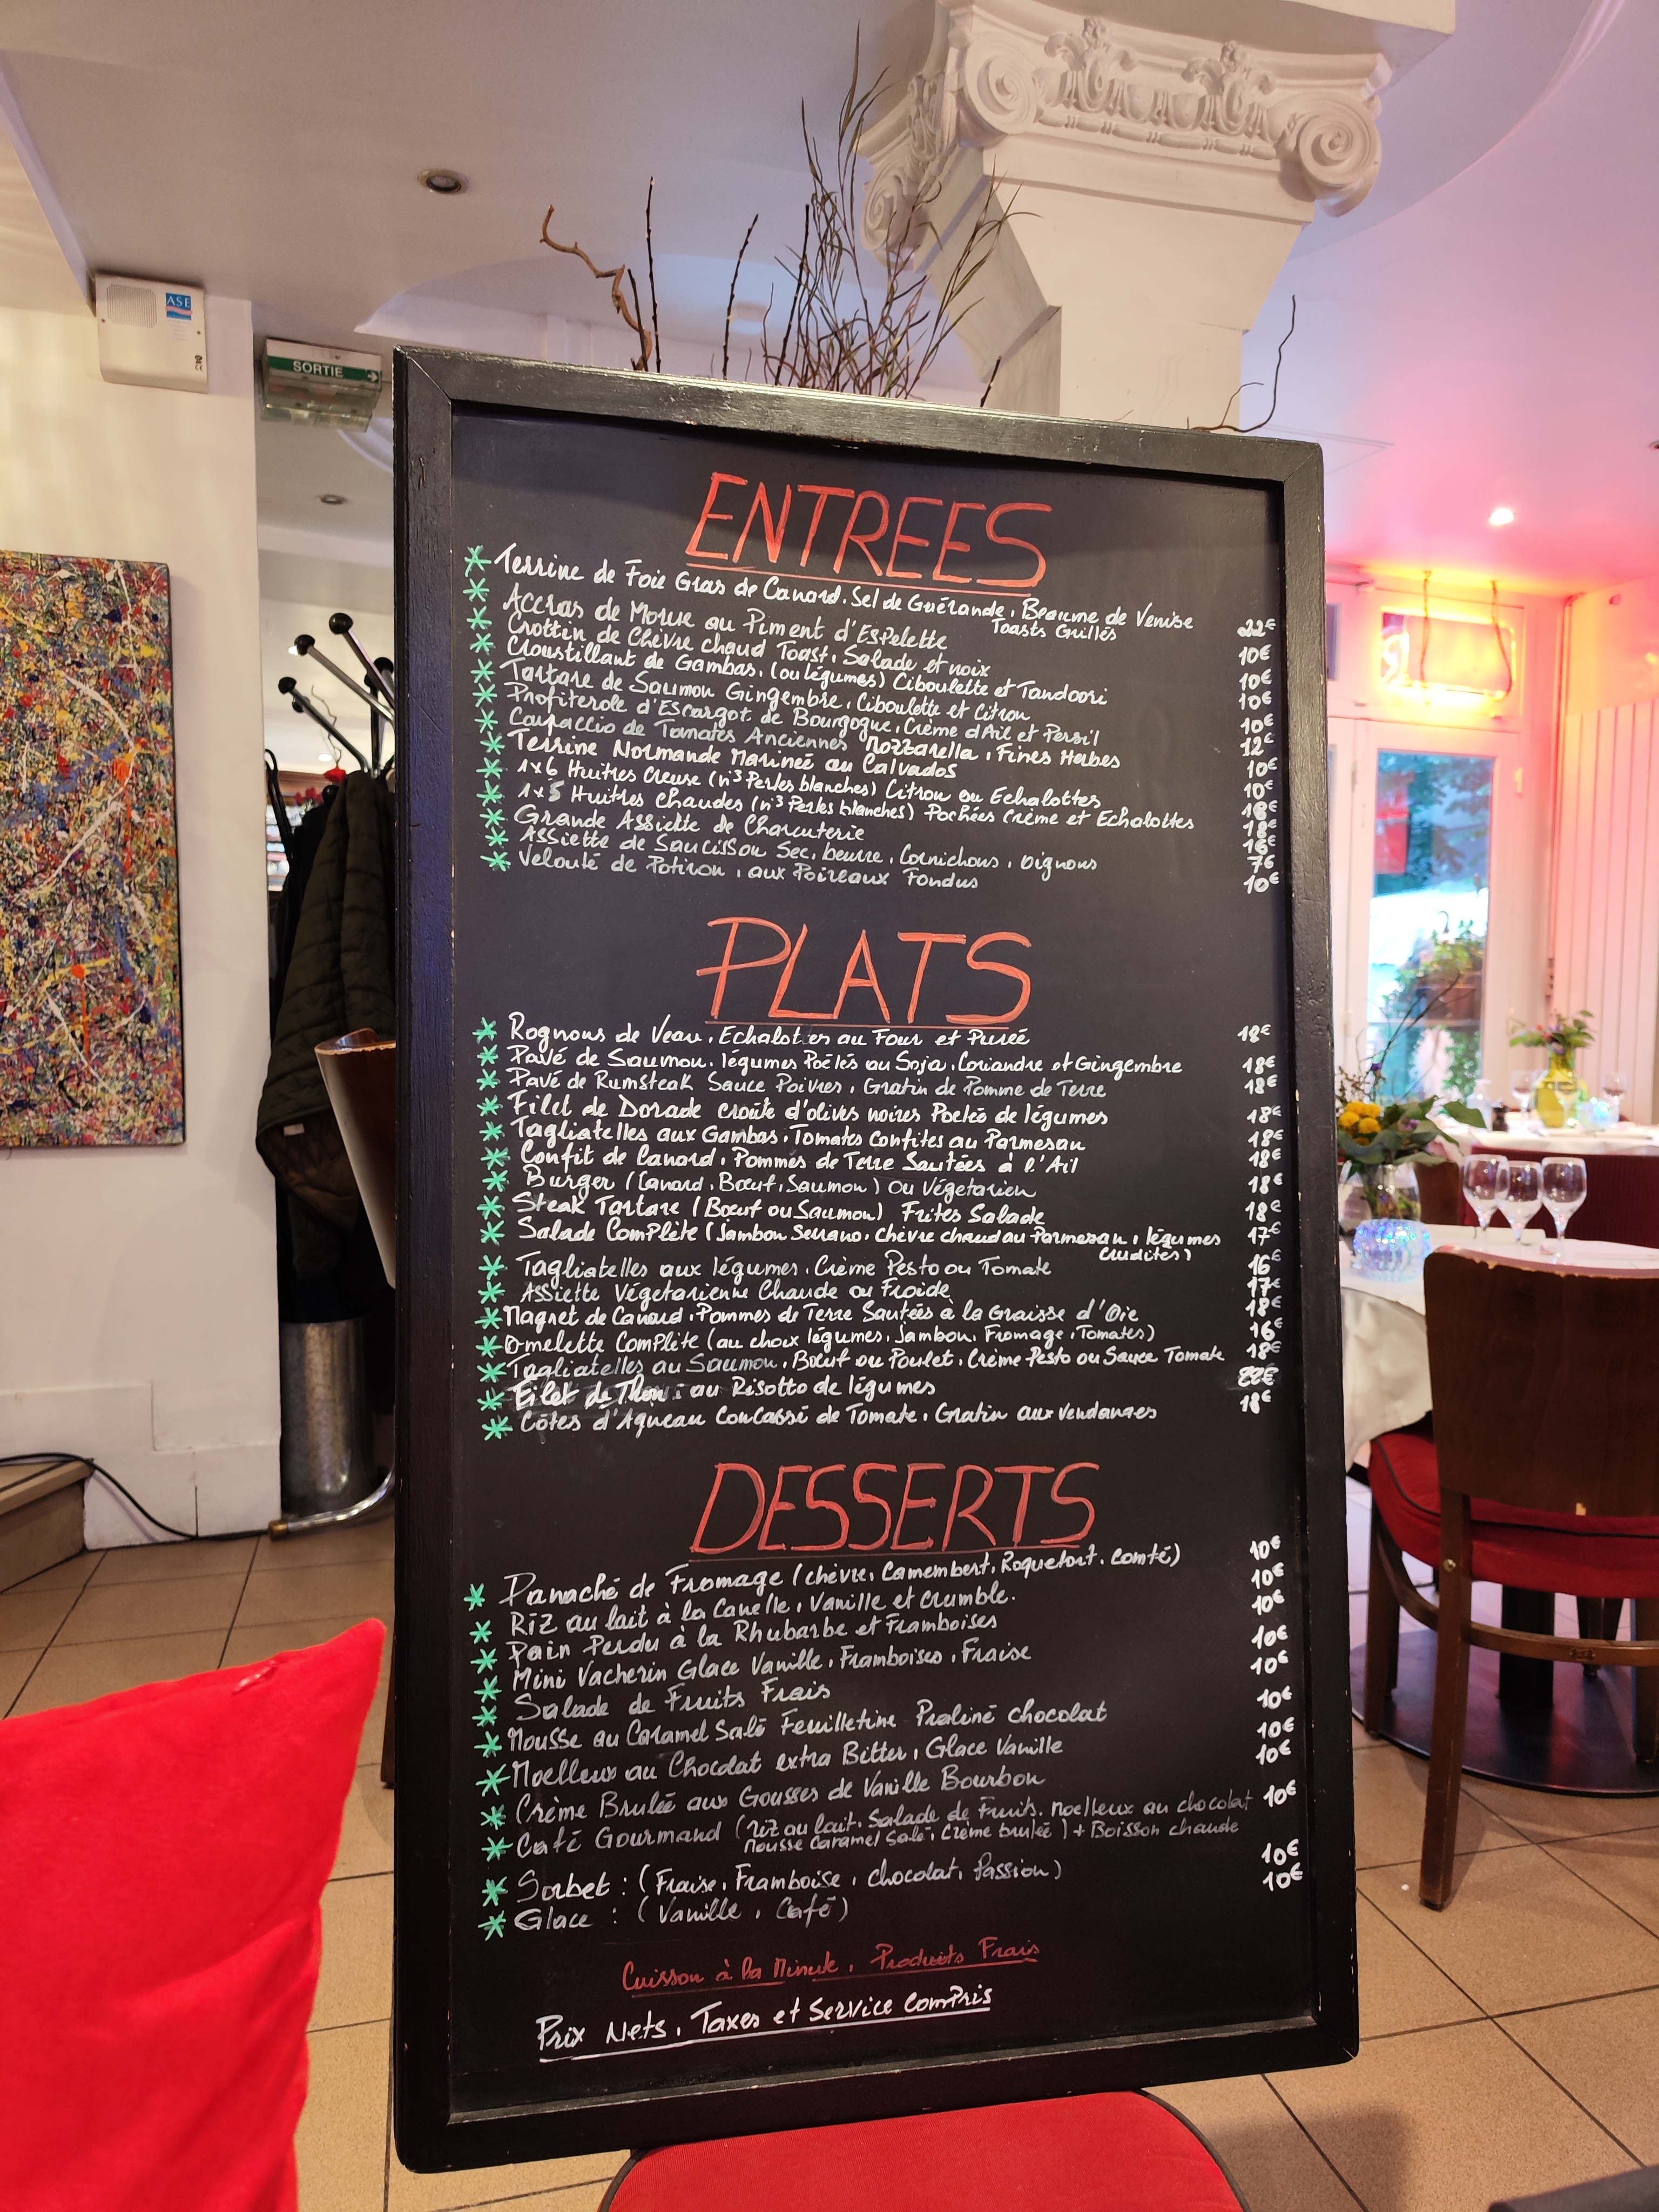 ASE
SORTIE
ENTREES
Terrine de Foie Gras de Canard. Sel de Guérande, Beaume de Venise 22€
Toasts Grillés
Accras de Morue au Piment d'Espelette 10€
Crottin de Chèvre chaud Toast, Salade et noix 10€
Croustillant de Gambas, (ou légumes) Ciboulette et Tandoori 10€
Tartare de Saumon Gingembre, Ciboulette et Citron 10€
Profiterole d'Escargot de Bourgogne, Crème d'Ail et Persil 12€
Carpaccio de Tomates Anciennes Mozzarella, Fines Herbes 10€
Terrine Normande Marineé au Calvados 10€
1x6 Huitres Creuse (n°3 Perles blanches) Citron ou Echalottes 18€
1x5 Huitres Chaudes (n°3 Perles blanches) Pochées Crème et Echalottes 18€
Grande Assiette de Charcuterie 16€
Assiette de Saucisson Sec, beurre, Cornichons, Oignons 7€
Velouté de Potiron, aux Poireaux Fondus 10€
PLATS
Rognons de Veau, Echalotes au Four et Pureé 18€
Pavé de Saumon, légumes Poêlés au Soja, Coriandre et Gingembre 18€
Pavé de Rumsteak Sauce Poivres, Gratin de Pomme de Terre 18€
Filet de Dorade croûte d'olives noires Poeleé de légumes 18€
Tagliatelles aux Gambas, Tomates Confites au Parmesan 18€
Confit de Canard, Pommes de Terre Sautées à l'Ail 18€
Burger (Canard, Bœuf, Saumon) ou Végetarien 18€
Steak Tartare (Bœuf ou Saumon) Frites Salade 18€
Salade Complète (Jambon Serrano, Chèvre chaud au Parmesan, légumes 17€
crudités)
Tagliatelles aux légumes, Crème Pesto ou Tomate 16€
Assiette Végetarienne Chaude ou Froide 17€
Magret de Canard, Pommes de Terre Sautées à la Graisse d'Oie 18€
Omelette Complète (au choix légumes, Jambon, Fromage, Tomates) 16€
Tagliatelles au Saumon, Bœuf ou Poulet, Crème Pesto ou Sauce Tomate 18€
Filet de Thon : au Risotto de légumes 22€
Côtes d'Agneau Concassé de Tomate, Gratin aux Vendanges 18€
DESSERTS
Panaché de Fromage (chèvre, Camembert, Roquefort, Comté) 10€
Riz au lait à la Canelle, Vanille et crumble. 10€
Pain Perdu à la Rhubarbe et Framboises 10€
Mini Vacherin Glace Vanille, Framboises, Fraise 10€
Salade de Fruits Frais 10€
Mousse au Caramel Salé Feuilletine Praliné chocolat 10€
Moelleux au Chocolat extra Bitter, Glace Vanille 10€
Crème Bruleé aux Gousses de Vanille Bourbon 10€
Café Gourmand (riz au lait, Salade de Fruits, moelleux au chocolat 10€
Mousse Caramel Salé, Crème bruleé) + Boisson chaude
Sorbet : (Fraise, Framboise, chocolat, Passion) 10€
Glace : (Vanille, Café) 10€
Cuisson à la Minute, Produits Frais
Prix Nets, Taxes et Service Compris